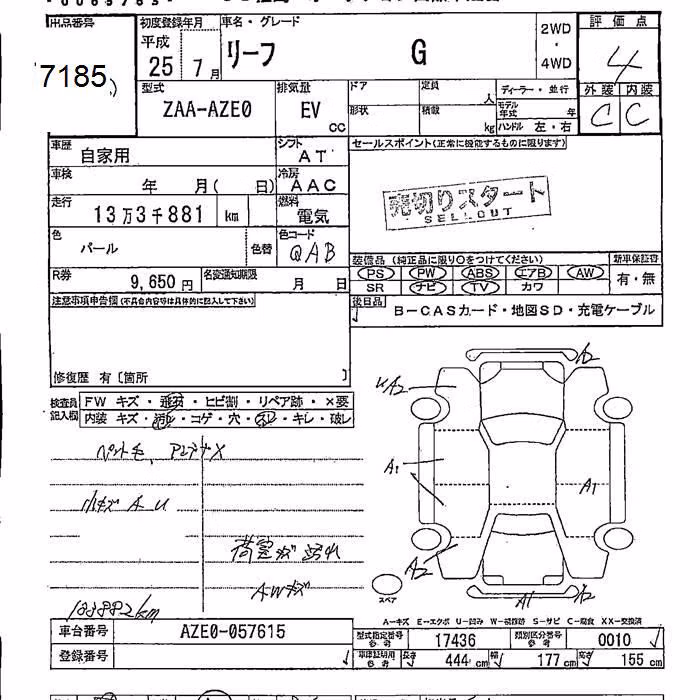 出品番号 初度登録年月 車名・グレード 2WD ・ 4WD 評価点
7185 平成 25 7月 リーフ G 4
型式 排気量 ドア 定員 人 ディーラー・並行 外装 内装
ZAA-AZE0 EV cc 形状 積載 kg モデル年式 年 ハンドル 左・右 C C
車歴 自家用 シフト AT セールスポイント(正常に機能するものに限ります)
車検 年 月( 日) 冷房 AAC
売切りスタート
SELLOUT
走行 13万3千881 km 燃料 電気
色 パール 色替 色コード QAB
装備品 (純正品に限り○をつけてください) 新車保証書
PS PW ABS エアB AW 有・無
SR ナビ TV カワ
R券 9,650円 名変通知期限 月 日
注意事項申告欄(不具合内容等は具体的に記入して下さい)
後日品 B-CASカード・地図SD・充電ケーブル
修復歴 有〔箇所 〕
検査員記入欄 FW キズ・飛石・ヒビ割・リペア跡・×要
内装 キズ・汚れ・コゲ・穴・スレ・キレ・破レ
A2
UA2
ペット毛、
A1 A1
小キズ A U
荷室キズ 汚れ
A2
AWキズ
スペア A1 A2
133882km
A-キズ E-エクボ U-凹み W-補修跡 S-サビ C-腐食 XX-交換済
車台番号 AZE0-057615 型式指定番号 参考 17436 類別区分番号 参考 0010
登録番号 車庫証明用 参考 長さ 444 cm 幅 177 cm 高さ 155 cm